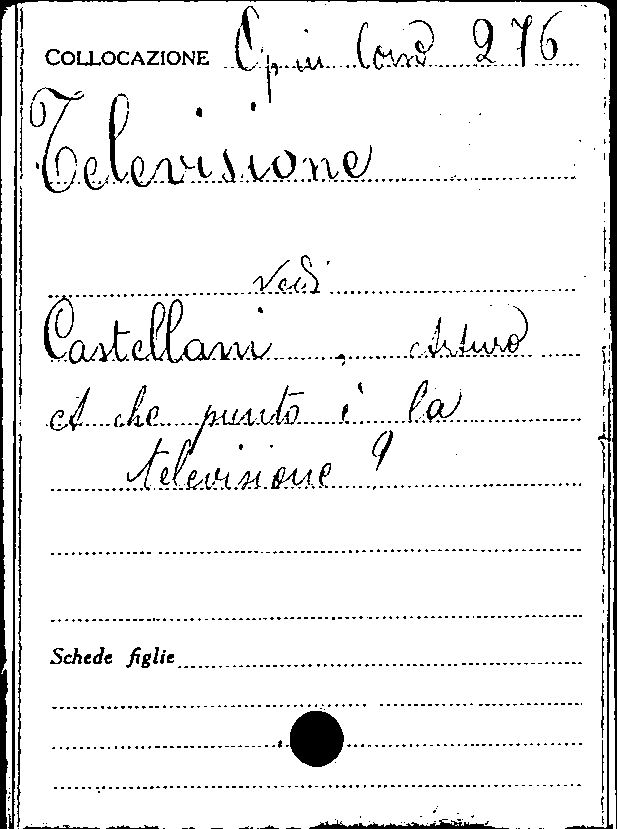 COLLOCAZIONE Op in Cons 276
Televisione
vedi
Castellani, Arturo
A che punto è la
televisione?
Schede figlie